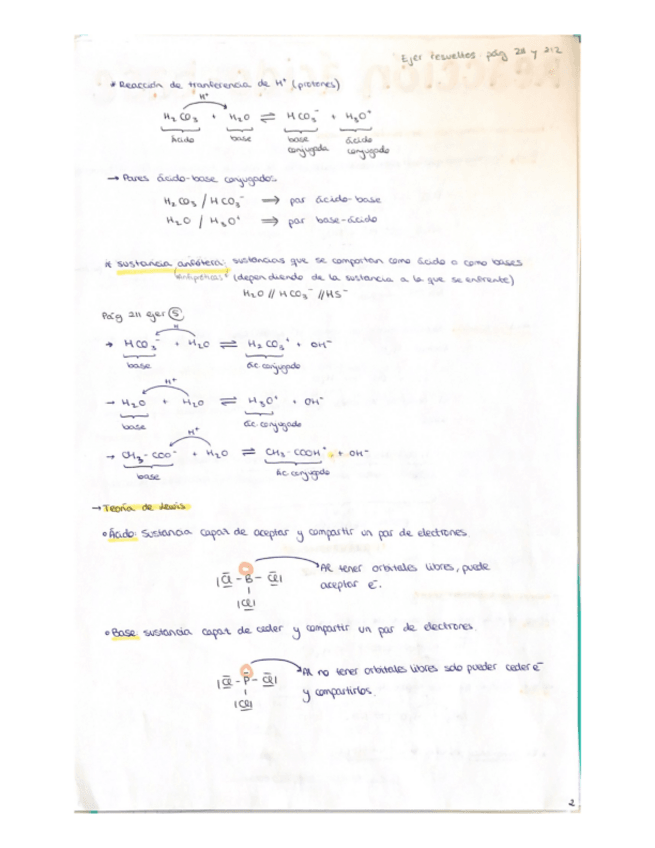 Ejer resueltos pág 211 y 212
* Reacción de tranferencia de H⁺ (protones)
H⁺
H₂CO₃ + H₂O ⇌ HCO₃⁻ + H₃O⁺
ácido base base conjugada ácido conjugado
→ Pares ácido-base conjugados:
H₂CO₃ / HCO₃⁻ ⟹ par ácido-base
H₂O / H₃O⁺ ⟹ par base-ácido
* sustancia anfótera: sustancias que se comportan como ácido o como bases
(anfipróticas) (dependiendo de la sustancia a la que se enfrente)
H₂O // HCO₃⁻ // HS⁻
Pág 211 ejer ⑤
H
→ HCO₃⁻ + H₂O ⇌ H₂CO₃⁺ + OH⁻
base ác. conjugado
H⁺
→ H₂O + H₂O ⇌ H₃O⁺ + OH⁻
base ác. conjugado
H⁺
→ CH₃-COO⁻ + H₂O ⇌ CH₃-COOH + OH⁻
base ác. conjugado
→ Teoría de Lewis
• Ácido: Sustancia capaz de aceptar y compartir un par de electrones.
Al tener orbitales libres, puede
|C̅l̲ - B - C̅l̲|
aceptar e⁻.
|C̲l|
• Base: sustancia capaz de ceder y compartir un par de electrones.
Al no tener orbitales libres solo pueder ceder e⁻
|C̅l̲ - P̅ - C̅l̲|
y compartirlos.
|C̲l|
2